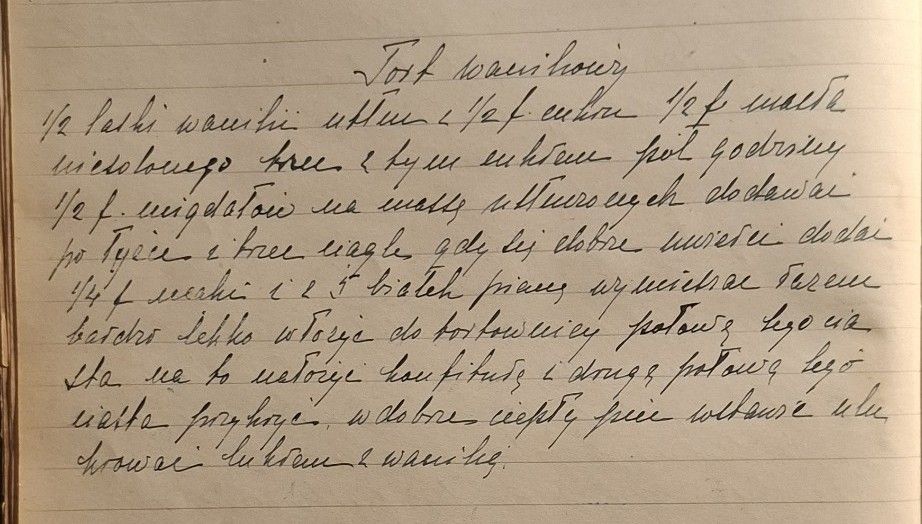 Tort waniliowy
1/2 laski wanilii utłuc z 1/2 f. cukru 1/2 f. masła
niesolonego trzeć z tym cukrem pół godziny
1/2 f. migdałów na masę utłuczonych dodawać
po łyżce i trzeć ciągle gdy się dobrze umieści dodać
1/4 f mąki i z 5 białek pianę wymieszać razem
bardzo lekko włożyć do tortownicy połowę tego cia
sta na to nałożyć konfiturę i drugą połową tegó
ciasta przykryć. w dobrze ciepły piec wstawić i lu
krować lukrem z wanilią.